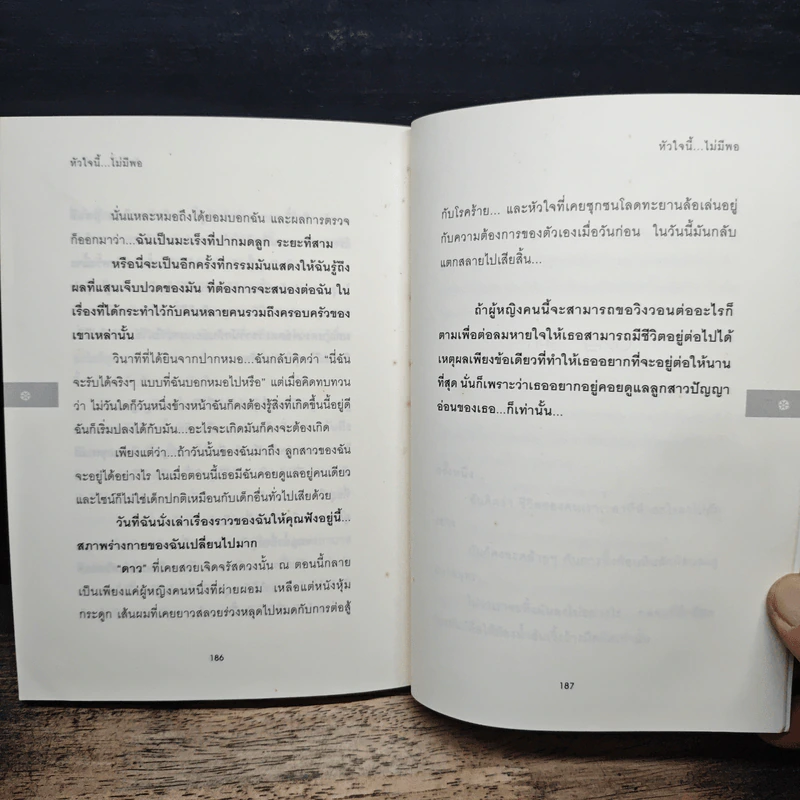 หัวใจนี้...ไม่มีพอ
นั่นแหละหมอถึงได้ยอมบอกฉัน และผลการตรวจ
ก็ออกมาว่า...ฉันเป็นมะเร็งที่ปากมดลูก ระยะที่สาม
หรือนี่จะเป็นอีกครั้งที่กรรมมันแสดงให้ฉันรู้ถึง
ผลที่แสนเจ็บปวดของมัน ที่ต้องการจะสนองต่อฉัน ใน
เรื่องที่ได้กระทำไว้กับคนหลายคนรวมถึงครอบครัวของ
เขาเหล่านั้น
วินาทีที่ได้ยินจากปากหมอ...ฉันกลับคิดว่า "นี่ฉัน
จะรับได้จริงๆ แบบที่ฉันบอกหมอไปหรือ" แต่เมื่อคิดทบทวน
ว่า ไม่วันใดก็วันหนึ่งข้างหน้าฉันก็คงต้องรู้สิ่งที่เกิดขึ้นนี้อยู่ดี
ฉันก็เริ่มปลงได้กับมัน...อะไรจะเกิดมันก็คงจะต้องเกิด
เพียงแต่ว่า...ถ้าวันนั้นของฉันมาถึง ลูกสาวของฉัน
จะอยู่ได้อย่างไร ในเมื่อตอนนี้เธอมีฉันคอยดูแลอยู่คนเดียว
และไซน์ก็ไม่ใช่เด็กปกติเหมือนกับเด็กอื่นทั่วไปเสียด้วย
วันที่ฉันนั่งเล่าเรื่องราวของฉันให้คุณฟังอยู่นี้...
สภาพร่างกายของฉันเปลี่ยนไปมาก
"ดาว" ที่เคยสวยเจิดจรัสดวงนั้น ณ ตอนนี้กลาย
เป็นเพียงแค่ผู้หญิงคนหนึ่งที่ผ่ายผอม เหลือแต่หนังหุ้ม
กระดูก เส้นผมที่เคยยาวสลวยร่วงหลุดไปหมดกับการต่อสู้
186
หัวใจนี้...ไม่มีพอ
กับโรคร้าย... และหัวใจที่เคยซุกซนโลดทะยานล้อเล่นอยู่
กับความต้องการของตัวเองเมื่อวันก่อน ในวันนี้มันกลับ
แตกสลายไปเสียสิ้น...
ถ้าผู้หญิงคนนี้จะสามารถขอวิงวอนต่ออะไรก็
ตามเพื่อต่อลมหายใจให้เธอสามารถมีชีวิตอยู่ต่อไปได้
เหตุผลเพียงข้อเดียวที่ทำให้เธออยากที่จะอยู่ต่อให้นาน
ที่สุด นั่นก็เพราะว่าเธออยากอยู่คอยดูแลลูกสาวปัญญา
อ่อนของเธอ...ก็เท่านั้น...
187